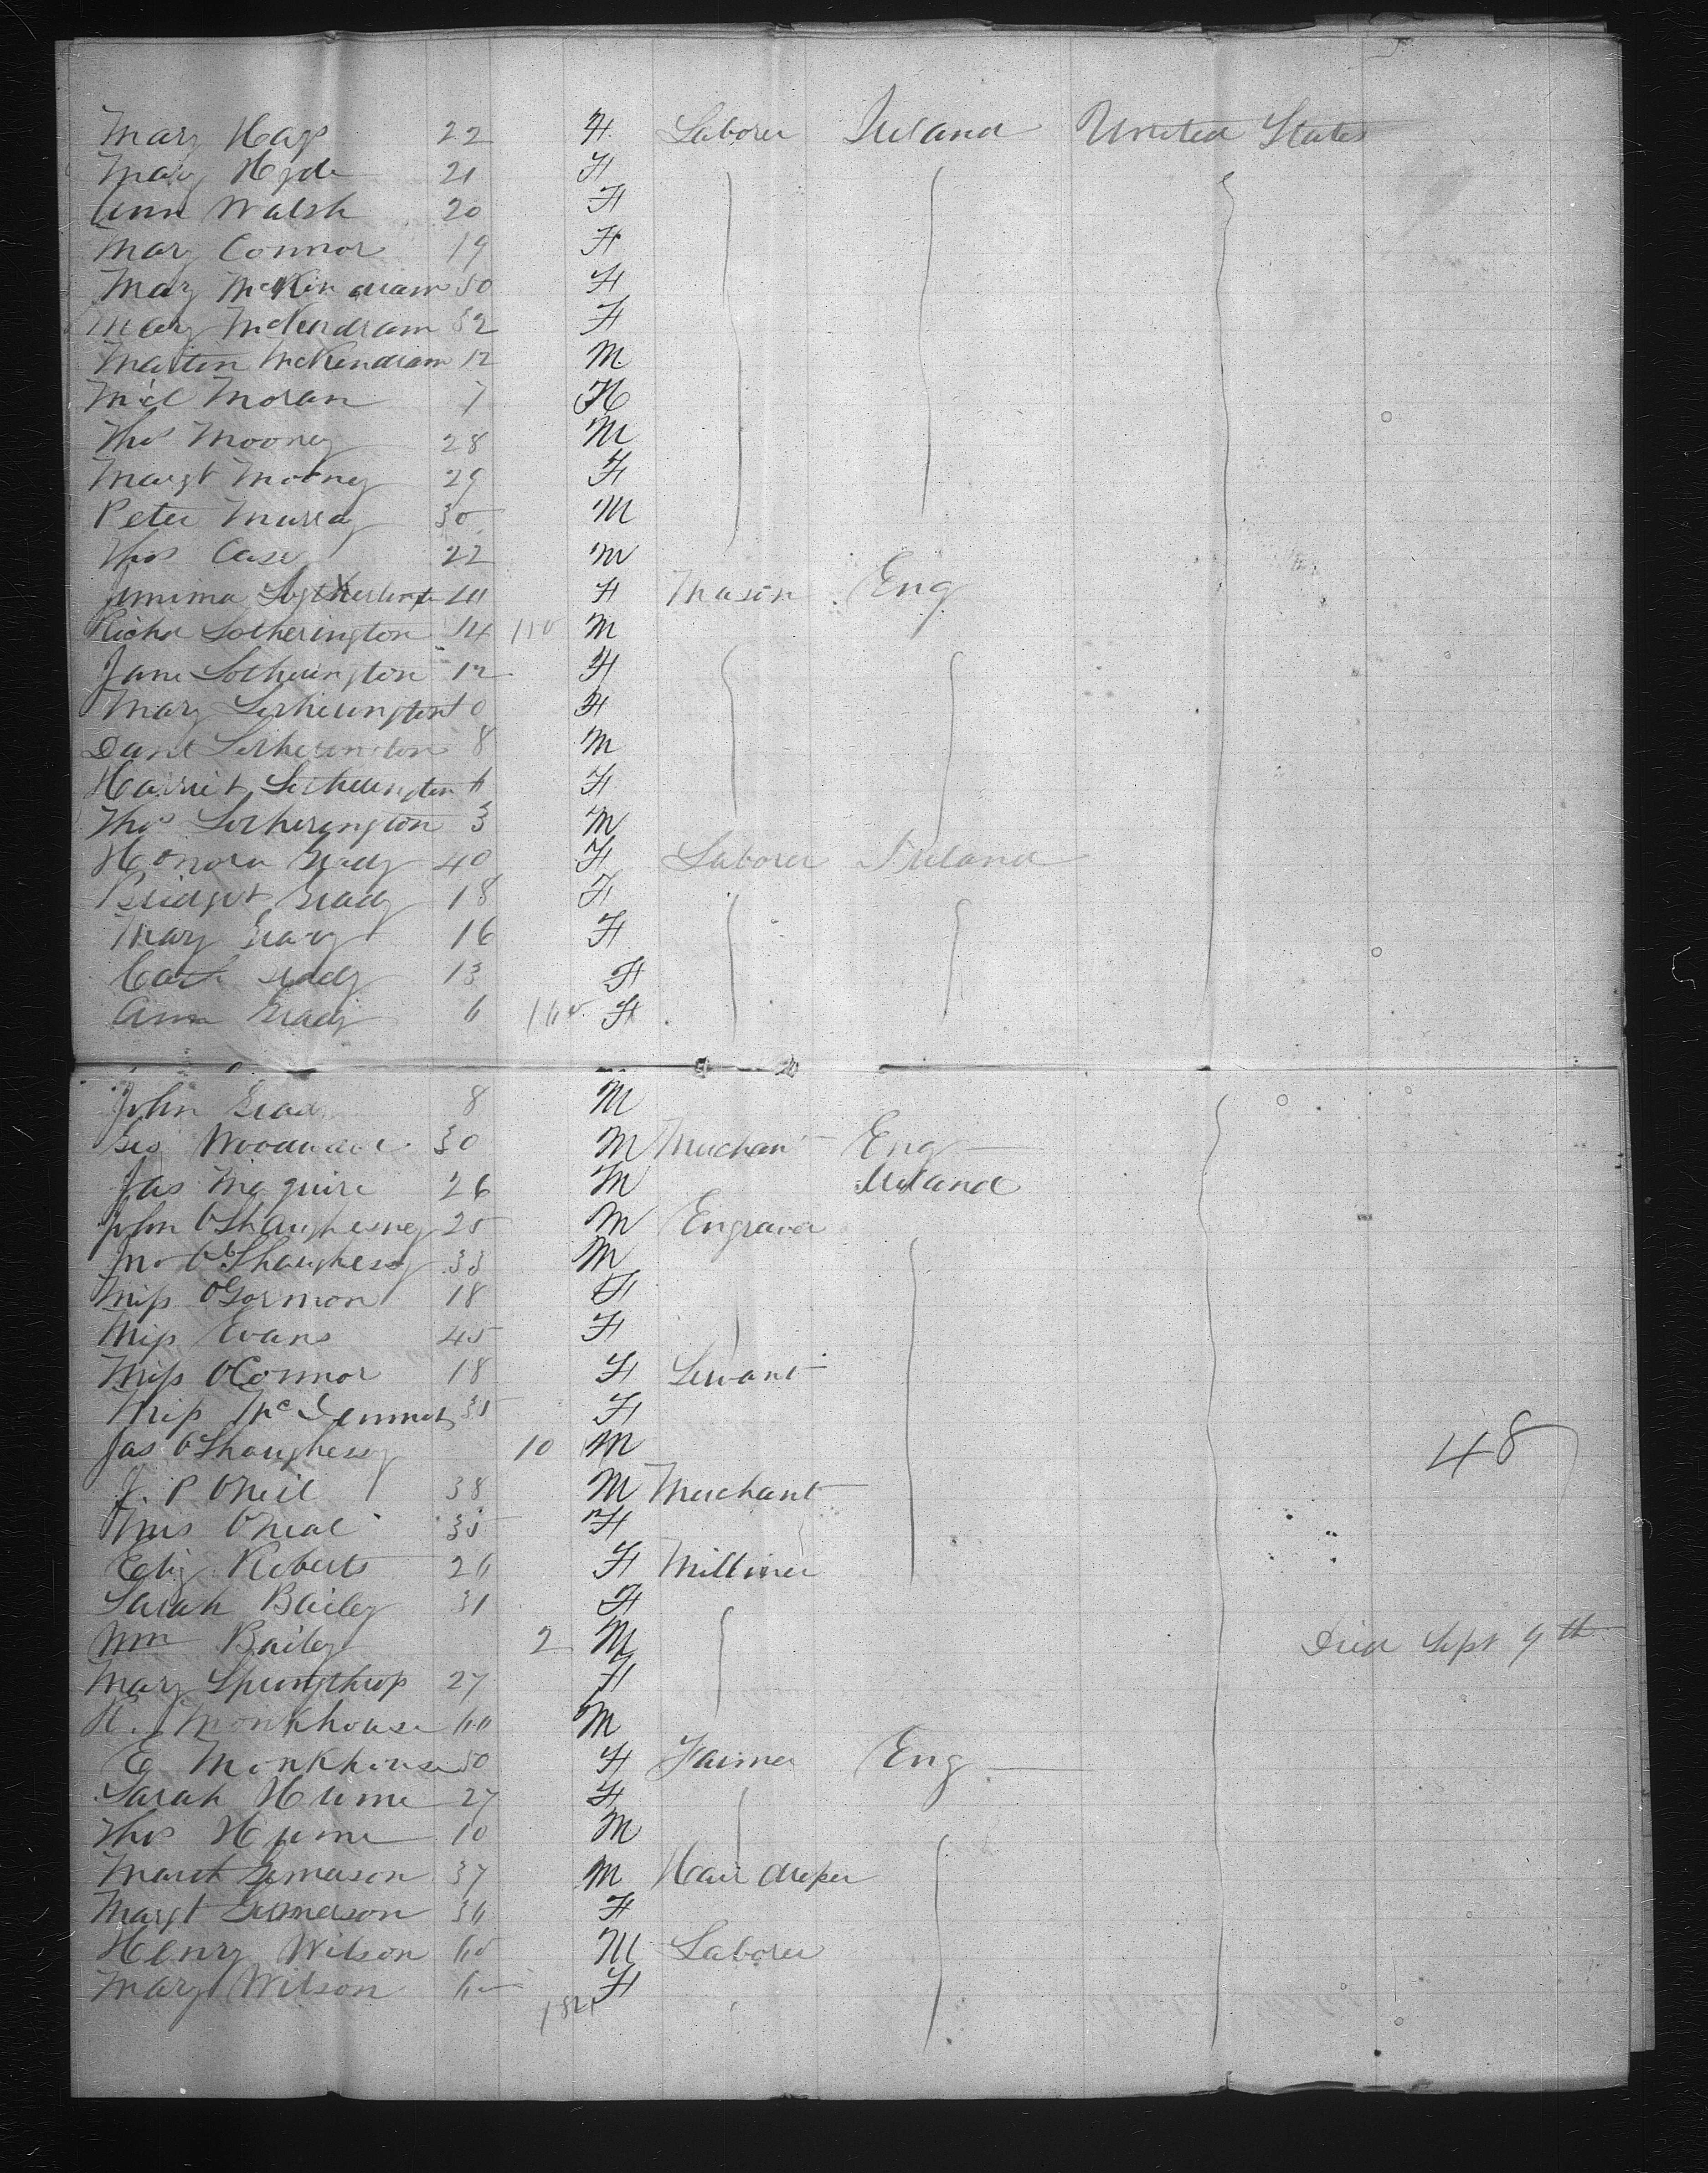 Mary Hays 22 F Laborer Ireland United States
Mary Hyde 21 F
Ann Walsh 20 F
Mary Connor 19 F
Mary McKindram 50 F
Mary McKendram 32 F
Martin McKendram 12 M
Mic'l Moran 7 M
Thos Mooney 28 M
Margt Mooney 29 F
Peter Murray 30 M
Thos Case 22 M
Jemima F Mason Eng
Richd Sotherington 14 110 M
Jane Sotherington 12 F
Mary Sotherington 10 F
Danl Sotherington 8 M
Harriet Sotherington 6 F
Thos Sotherington 3 M
Honora Grady 40 F Laborer Ireland
Bridget Grady 18 F
Mary Grady 16 F
Cath Grady 13 F
Ann Grady 6 F
John Grady 8 M
Geo Woodward 30 M Merchant Eng
Jas Maguire 26 M Ireland
John OShaughesney 25 M Engraver
OShaughessy 33 M
Miss OGormon 18 F
Miss Evans 45 F
Miss OConnor 18 F Servant
Miss McDermott 35 F
Jas OShaughessy 10 M
48
J. P ONeil 38 M Merchant
Mrs ONeal 35 F
Eliz Roberts 26 F Milliner
Sarah Bailey 31 F
Wm Bailey 2 M Died Sept 9th
Mary Springthrop 27 F
R. Monkhouse 60 M
E Monkhouse 50 F Farmer Eng
Sarah Hume 27 F
Thos Hume 10 M
37 M Hair dresser
Margt 36 F
Henry Wilson 65 M Laborer
Mary Wilson F